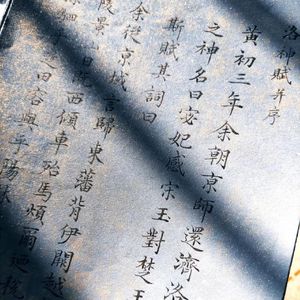 洛神賦并序
黃初三年余朝京師還濟洛
之神名曰宓妃感宋玉對楚王
斯賦其詞曰
余從京域言歸東藩背伊闕越
景山日既西傾車殆馬煩爾迺稅
田容與乎陽林